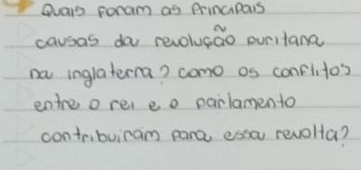 Quais foram as Principais
causas da revolução puritana
na inglaterra? como os conflitos
entre o rei e o parlamento
contribuiram para essa revolta?